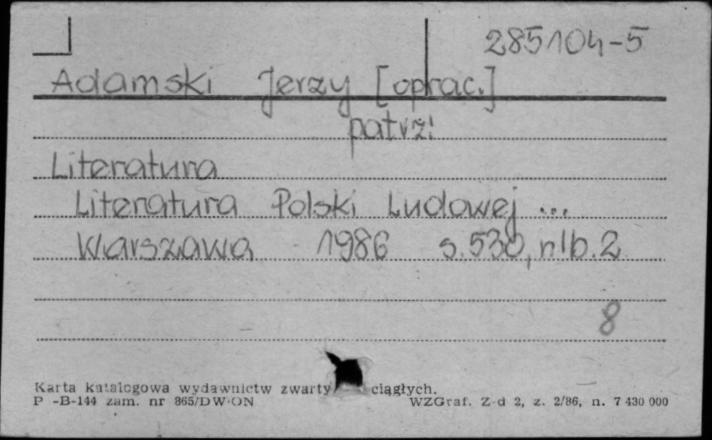 285104-5
Adamski Jerzy [oprac.]
patrz:
Literatura
Literatura Polski Ludowej ...
Warszawa 1986 s.530, nlb.2
8
Karta katalogowa wydawnictw zwarty ciągłych.
P -B-144 zam. nr 865/DW-ON WZGraf. Z-d 2, z. 2/86, n. 7 430 000